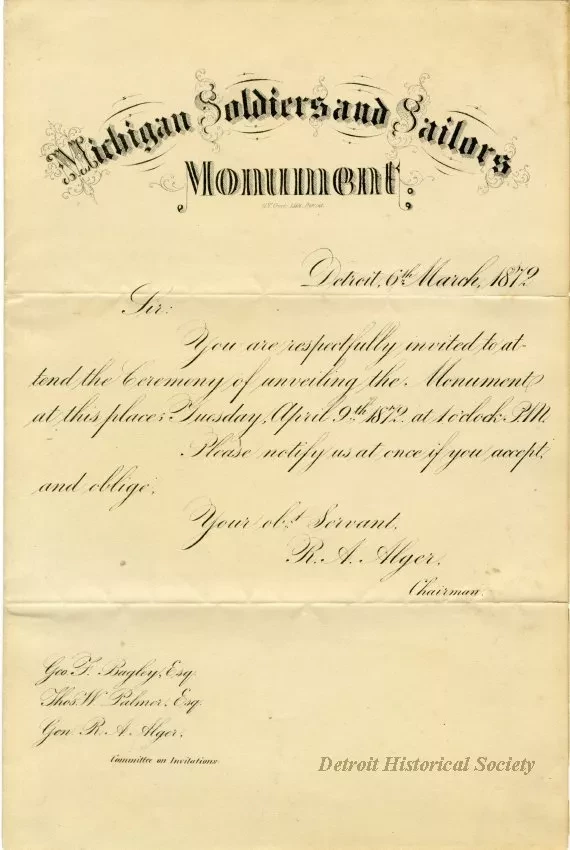 Michigan Soldiers and Sailors
Monument.
Detroit, 6th March, 1872
Sir:
You are respectfully invited to at-
tend the Ceremony of unveiling the Monument
at this place; Tuesday, April 9th 1872 at 1 o'clock P.M.
Please notify us at once if you accept,
and oblige,
Your obt Servant,
R. A. Alger,
Chairman.
Geo. F. Bagley, Esq.
Thos. W. Palmer, Esq.
Gen. R. A. Alger,
Committee on Invitations.
Detroit Historical Society